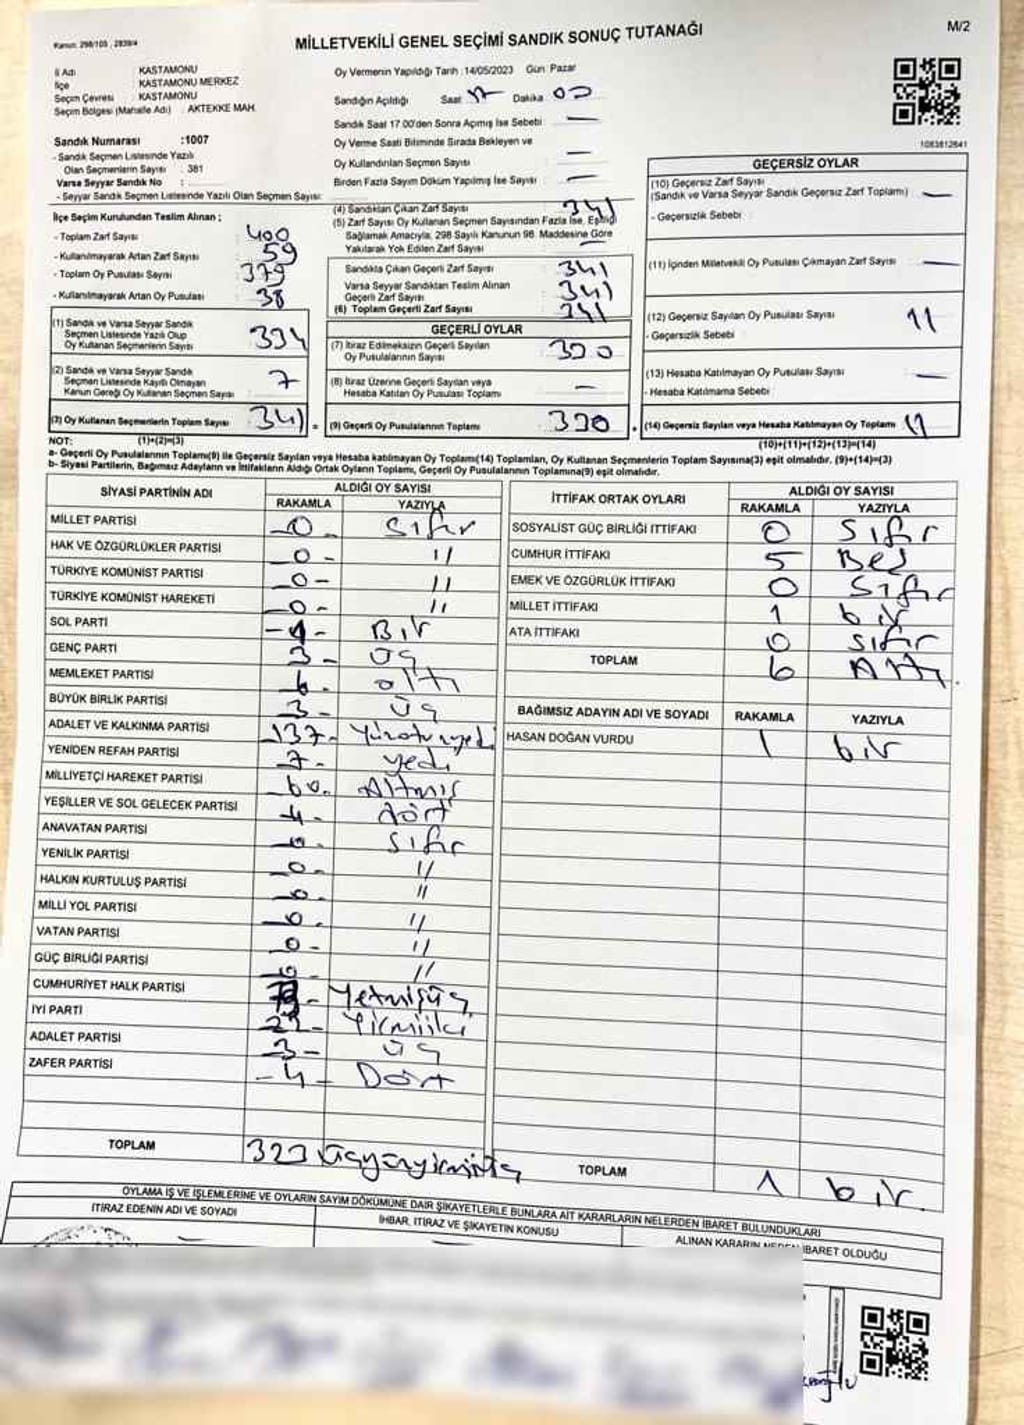 M/2
Kanun: 298/105 , 2839/4
MİLLETVEKİLİ GENEL SEÇİMİ SANDIK SONUÇ TUTANAĞI
İl Adı : KASTAMONU
İlçe : KASTAMONU MERKEZ
Seçim Çevresi : KASTAMONU
Seçim Bölgesi (Mahalle Adı) : AKTEKKE MAH.
Sandık Numarası :1007
- Sandık Seçmen Listesinde Yazılı
Olan Seçmenlerin Sayısı : 381
Varsa Seyyar Sandık No :
- Seyyar Sandık Seçmen Listesinde Yazılı Olan Seçmen Sayısı:
Oy Vermenin Yapıldığı Tarih :14/05/2023 Gün: Pazar
Sandığın Açıldığı Saat 17 Dakika 00
Sandık Saat 17.00'den Sonra Açılmış İse Sebebi : —
Oy Verme Saati Bitiminde Sırada Bekleyen ve
Oy Kullandırılan Seçmen Sayısı : —
Birden Fazla Sayım Döküm Yapılmış İse Sayısı : —
1083812641
İlçe Seçim Kurulundan Teslim Alınan ;
- Toplam Zarf Sayısı : 400
- Kullanılmayarak Artan Zarf Sayısı : 59
- Toplam Oy Pusulası Sayısı : 379
- Kullanılmayarak Artan Oy Pusulası : 38
(1) Sandık ve Varsa Seyyar Sandık
Seçmen Listesinde Yazılı Olup
Oy Kullanan Seçmenlerin Sayısı : 334
(2) Sandık ve Varsa Seyyar Sandık
Seçmen Listesinde Kayıtlı Olmayan
Kanun Gereği Oy Kullanan Seçmen Sayısı : 7
(3) Oy Kullanan Seçmenlerin Toplam Sayısı : 341
(4) Sandıktan Çıkan Zarf Sayısı : 341
(5) Zarf Sayısı Oy Kullanan Seçmen Sayısından Fazla İse, Eşitliği
Sağlamak Amacıyla, 298 Sayılı Kanunun 98. Maddesine Göre
Yakılarak Yok Edilen Zarf Sayısı : —
Sandıkta Çıkan Geçerli Zarf Sayısı : 341
Varsa Seyyar Sandıktan Teslim Alınan
Geçerli Zarf Sayısı : 341
(6) Toplam Geçerli Zarf Sayısı : 341
GEÇERLİ OYLAR
(7) İtiraz Edilmeksizin Geçerli Sayılan
Oy Pusulalarının Sayısı : 330
(8) İtiraz Üzerine Geçerli Sayılan veya
Hesaba Katılan Oy Pusulası Toplamı : —
(9) Geçerli Oy Pusulalarının Toplamı : 330
GEÇERSİZ OYLAR
(10) Geçersiz Zarf Sayısı
(Sandık ve Varsa Seyyar Sandık Geçersiz Zarf Toplamı) : —
- Geçersizlik Sebebi :
(11) İçinden Milletvekili Oy Pusulası Çıkmayan Zarf Sayısı : —
(12) Geçersiz Sayılan Oy Pusulası Sayısı : 11
- Geçersizlik Sebebi :
(13) Hesaba Katılmayan Oy Pusulası Sayısı : —
- Hesaba Katılmama Sebebi :
(14) Geçersiz Sayılan veya Hesaba Katılmayan Oy Toplamı : 11
NOT: (1)+(2)=(3) (10)+(11)+(12)+(13)=(14)
a- Geçerli Oy Pusulalarının Toplamı(9) ile Geçersiz Sayılan veya Hesaba katılmayan Oy Toplamı(14) Toplamları, Oy Kullanan Seçmenlerin Toplam Sayısına(3) eşit olmalıdır. (9)+(14)=(3)
b- Siyasi Partilerin, Bağımsız Adayların ve İttifakların Aldığı Ortak Oyların Toplamı, Geçerli Oy Pusulalarının Toplamına(9) eşit olmalıdır.
SİYASİ PARTİNİN ADI ALDIĞI OY SAYISI
RAKAMLA YAZIYLA
MİLLET PARTİSİ -0- Sıfır
HAK VE ÖZGÜRLÜKLER PARTİSİ -0- "
TÜRKİYE KOMÜNİST PARTİSİ -0- "
TÜRKİYE KOMÜNİST HAREKETİ -0- "
SOL PARTİ -1- Bir
GENÇ PARTİ 3- Üç
MEMLEKET PARTİSİ 6- altı
BÜYÜK BİRLİK PARTİSİ 3- Üç
ADALET VE KALKINMA PARTİSİ 137- Yüzotuzyedi
YENİDEN REFAH PARTİSİ 7- yedi
MİLLİYETÇİ HAREKET PARTİSİ 60- Altmış
YEŞİLLER VE SOL GELECEK PARTİSİ 4- dört
ANAVATAN PARTİSİ -0- Sıfır
YENİLİK PARTİSİ -0- "
HALKIN KURTULUŞ PARTİSİ -0- "
MİLLİ YOL PARTİSİ -0- "
VATAN PARTİSİ -0- "
GÜÇ BİRLİĞİ PARTİSİ -0- "
CUMHURİYET HALK PARTİSİ 73- Yetmişüç
İYİ PARTİ 22- Yirmiiki
ADALET PARTİSİ -3- Üç
ZAFER PARTİSİ -4- Dört
TOPLAM 323 Üçyüzyirmiüç
İTTİFAK ORTAK OYLARI ALDIĞI OY SAYISI
RAKAMLA YAZIYLA
SOSYALİST GÜÇ BİRLİĞİ İTTİFAKI 0 Sıfır
CUMHUR İTTİFAKI 5 Beş
EMEK VE ÖZGÜRLÜK İTTİFAKI 0 Sıfır
MİLLET İTTİFAKI 1 bir
ATA İTTİFAKI 0 sıfır
TOPLAM 6 Altı
BAĞIMSIZ ADAYIN ADI VE SOYADI RAKAMLA YAZIYLA
HASAN DOĞAN VURDU 1 bir
TOPLAM 1 bir
OYLAMA İŞ VE İŞLEMLERİNE VE OYLARIN SAYIM DÖKÜMÜNE DAİR ŞİKAYETLERLE BUNLARA AİT KARARLARIN NELERDEN İBARET BULUNDUKLARI
İTİRAZ EDENİN ADI VE SOYADI
İHBAR, İTİRAZ VE ŞİKAYETİN KONUSU
ALINAN KARARIN NEDEN İBARET OLDUĞU